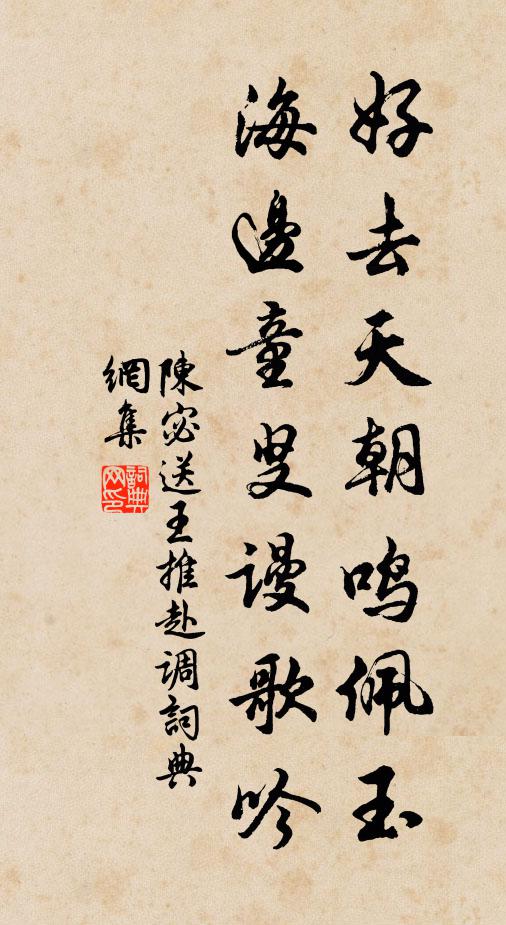 好去天朝鸣佩玉
海邊童叟謾歌吟
陳宓送王推赴调詞典
網集
詞典网印